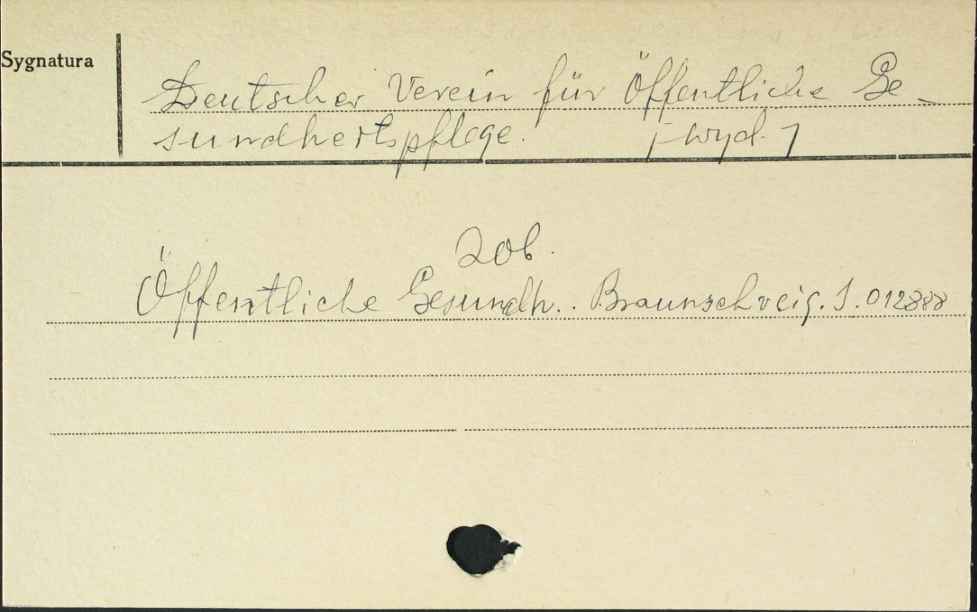 Sygnatura
Deutscher Verein für Öffentliche Ge-
sundheitspflege. [wyd.]
Zob.
Öffentliche Gesundh.. Braunschveig. S. 012888